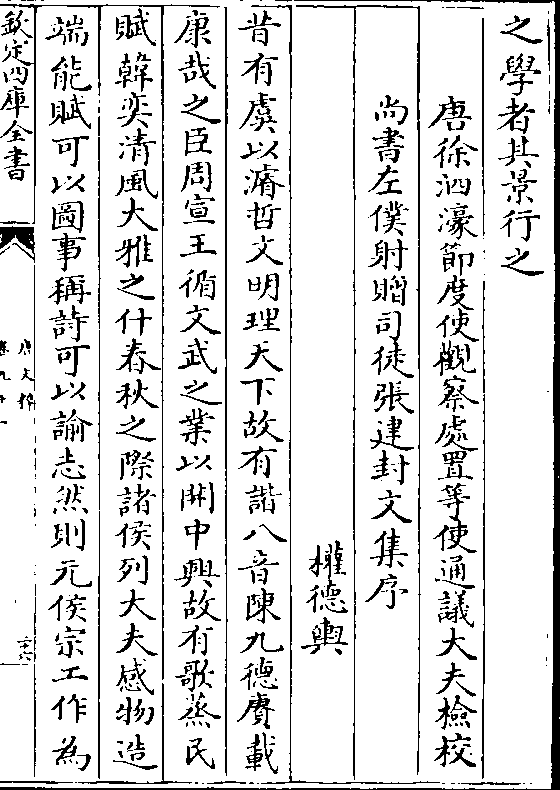 之學者其景行之
唐徐泗濠節度使觀察處置等使通議大夫檢校
尚書左僕射贈司徒張建封文集序
權德輿
昔有虞以濬哲文明理天下故有諧八音陳九德賡載
康哉之臣周宣王循文武之業以開中興故有歌蒸民
賦韓奕清風大雅之什春秋之際諸侯列大夫感物造
端能賦可以圖事稱詩可以諭志然則元侯宗工作為
欽定四庫全書
唐文粹
卷九十一
二十六